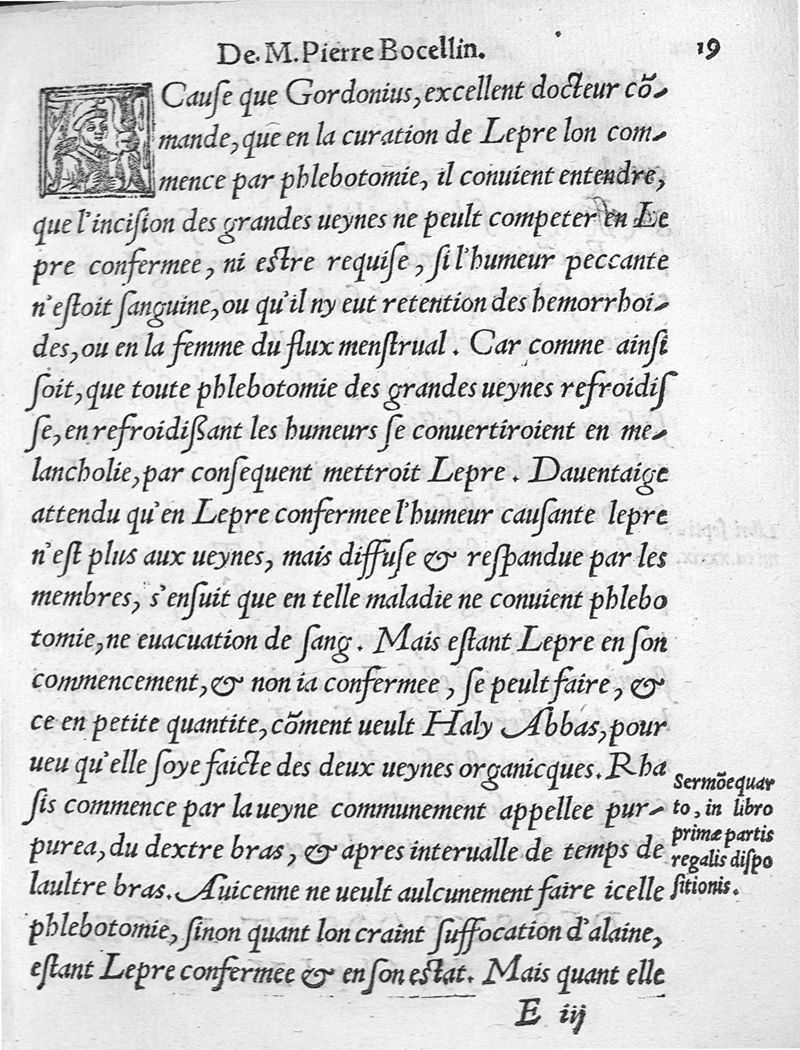 De. M. Pierre Bocellin. 19
A Cauſe que Gordonius, excellent docteur cõ-
mande, que en la curation de Lepre lon com-
mence par phlebotomie, il conuient entendre,
que l'inciſion des grandes ueynes ne peult competer en Le
pre confermee, ni eſtre requiſe, ſi l'humeur peccante
n'eſtoit ſanguine, ou qu'il ny eut retention des hemorrhoi-
des, ou en la femme du flux menſtrual. Car comme ainſi
ſoit, que toute phlebotomie des grandes ueynes refroidiſ
ſe, en refroidißant les humeurs ſe conuertiroient en me-
lancholie, par conſequent mettroit Lepre. Dauentaige
attendu qu'en Lepre confermee l'humeur cauſante lepre
n'eſt plus aux ueynes, mais diffuſe & reſpandue par les
membres, s'enſuit que en telle maladie ne conuient phlebo
tomie, ne euacuation de ſang. Mais eſtant Lepre en ſon
commencement, & non ia confermee, ſe peult faire, &
ce en petite quantite, cõment ueult Haly Abbas, pour
ueu qu'elle ſoye faicte des deux ueynes organicques. Rha
ſis commence par la ueyne communement appellee pur-
purea, du dextre bras, & apres interualle de temps de
laultre bras. Auicenne ne ueult aulcunement faire icelle
phlebotomie, ſinon quant lon craint ſuffocation d'alaine,
eſtant Lepre confermee & en ſon eſtat. Mais quant elle
E iij
Sermõe quar
to, in libro
primæ partis
regalis diſpo
ſitionis.